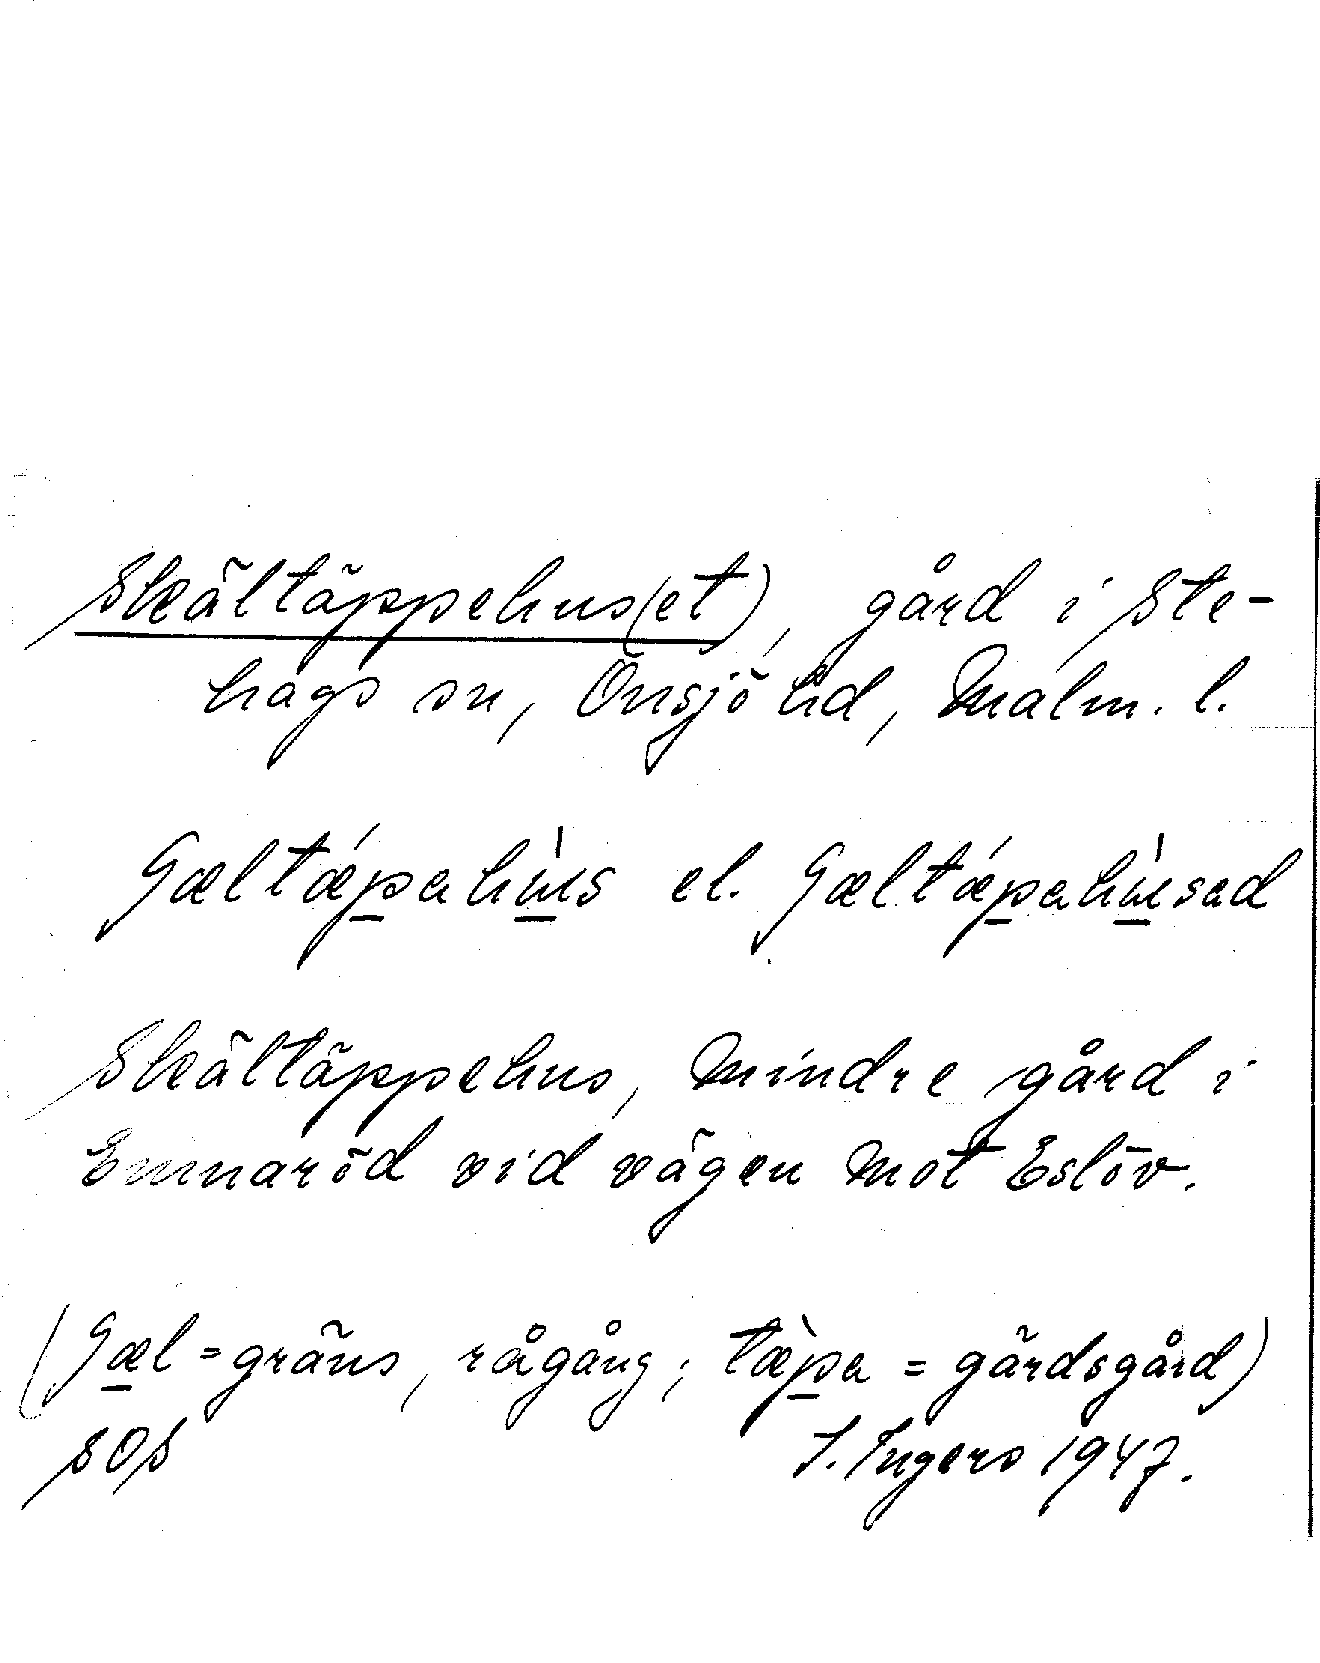 Skältäppehus(et), gård i Ste-
hags sn, Onsjö hd, Malm. l.
Gæltǽpahùs el. Gæltǽpahùsad
Skältäppehus, mindre gård i
Ennaröd vid vägen mot Eslöv.
(Gæl = gräns, rågång; tæ̀pa = gärdsgård)
SOS I. Ingers 1947.